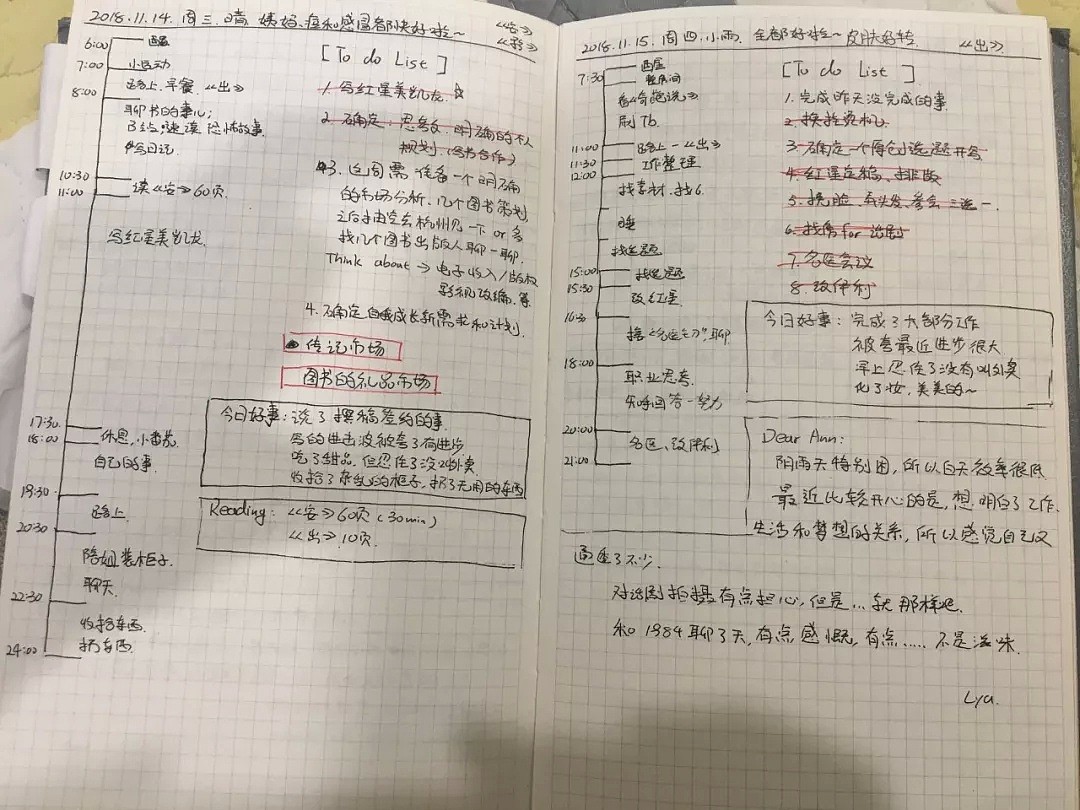 2018.11.14. 周三.晴 姨妈、痘和感冒都快好啦~
《安》
6:00
7:00 小运动
路上.早餐.《出》
8:00
聊书的事儿;
写日记.
10:30
11:00 读《安》60页
写红星美凯龙
17:30
18:00 休息,小番茄
自己的事
19:30
路上
20:30
陪姐装柜子.
聊天.
22:30
收拾东西.
24:00 扔东西.
[To do List]
1. 写红星美凯龙. ☆
2. 确定、思考、明确的个人
规划.(写书合作)
3. 这周需 准备一个明确
的市场分析、几个图书策划
之后抽空去杭州见一下 or 多
找几个图书出版人聊一聊.
Think about → 电子收入/版权
影视改编.等
4. 确定自我成长新需求和计划.
传记市场
图书的礼品市场
今日好事: 说了撰稿签约的事.
写的 被夸了有进步
吃了甜品,但忍住了没叫外卖.
收拾了杂乱的柜子,扔了无用的东西
Reading: 《安》60页 (30min)
《出》10页.
2018.11.15. 周四.小雨. 全都好啦~ 皮肤好转. 《出》
7:30
看《奇葩说》
刷Tb.
11:00 路上-《出》
11:30 工作整理
12:00
找素材.找G.
睡
找选题
15:00 找选题
15:30 改红星
16:30
18:00
职业思考.
知乎回答-努力
20:00
名医、改伊利
21:00
[To do List]
1. 完成昨天没完成的事.
2. 换
3. 确定一个原创选题开写
4. 红星定稿、排版
5. 换脸、 三选一.
6.
7. 名医会议
8. 改伊利
今日好事: 完成了大部分工作
被夸最近进步很大
早上忍住了没有叫外卖
化了妆,美美的~
Dear Ann:
阴雨天特别困,所以白天效率很低
最近比较开心的是,想明白了工作.
生活和梦想的关系,所以感觉自己又
通透了不少.
对话剧拍摄有点担心,但是…就那样吧.
和1984聊了天,有点感慨,有点……不是滋味.
Lya.